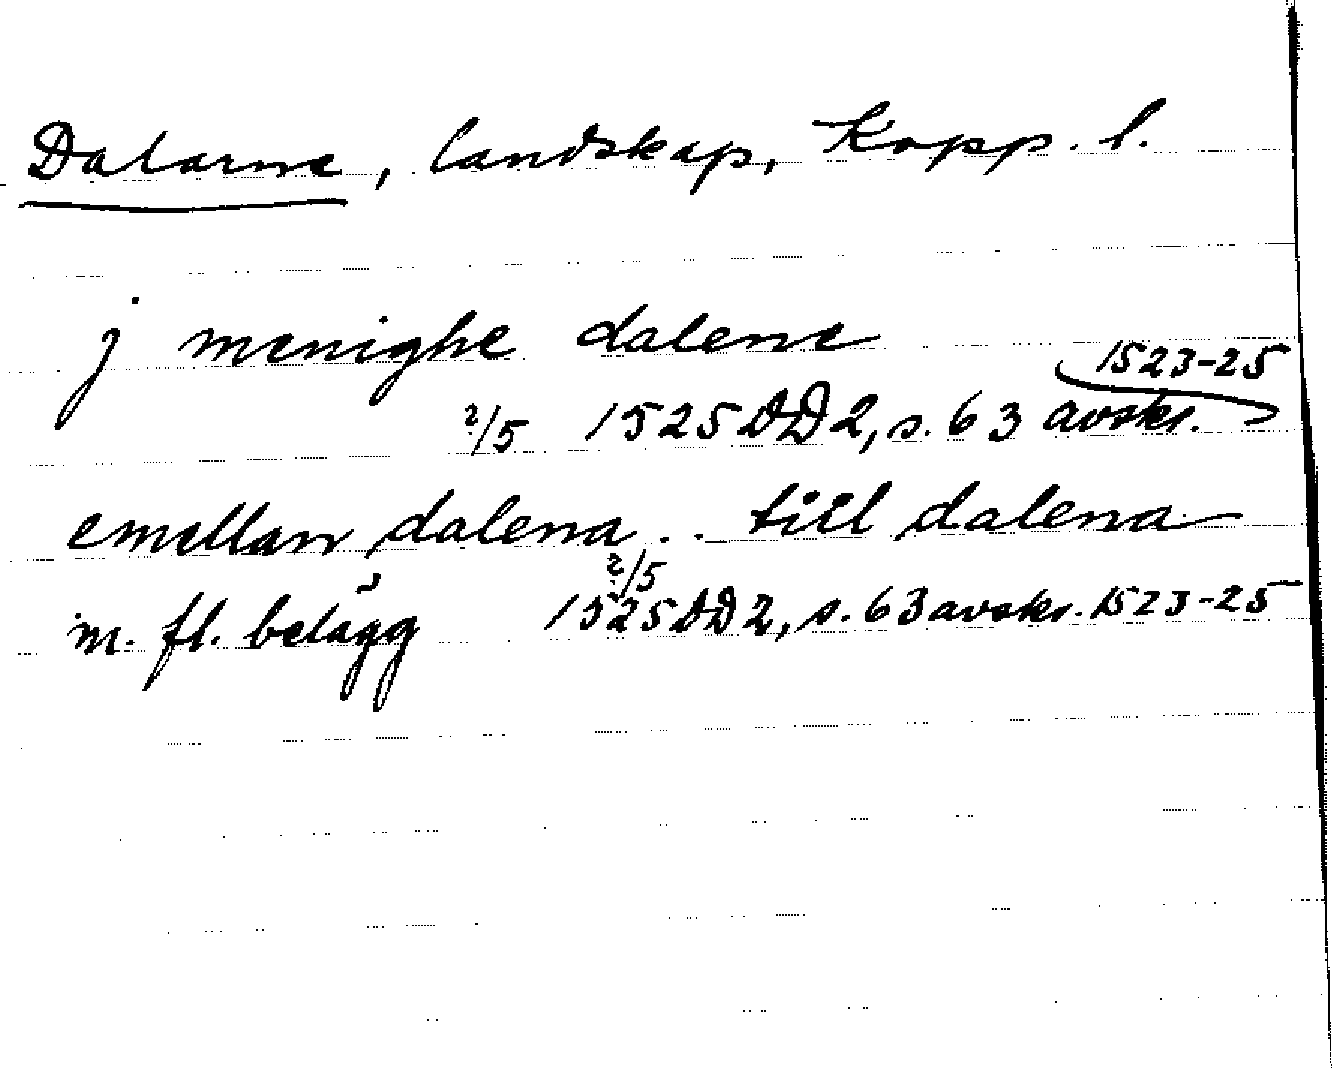 Dalarne, landskap, Kopp. l.
j menighe dalene
2/5 1525 DD 2, s. 63 avskr. 1523-25
emellan dalena .. till dalena
m. fl. belägg 2/5 1525 DD 2, s. 63 avskr. 1523-25